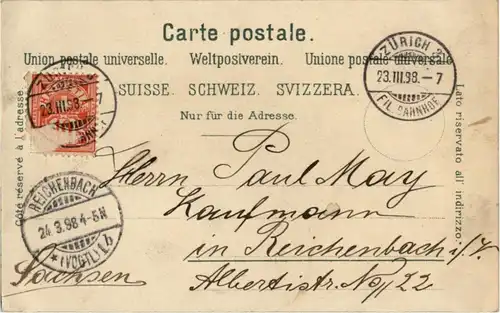 Carte postale.
Union postale universelle. Weltpostverein. Unione postale universale
SUISSE. SCHWEIZ. SVIZZERA.
Nur für die Adresse.
Côté réservé à l'adresse.
Lato riservato all' indirizzo.
ZÜRICH
23.III.98.-7
FIL. BAHNHOF
23.III.98.-7
REICHENBACH
24.3.98.4-5N
* (VOGTL) b
Herrn Paul May
Kaufmann
in Reichenbach i/V.
Albertistr. No 22
Sachsen